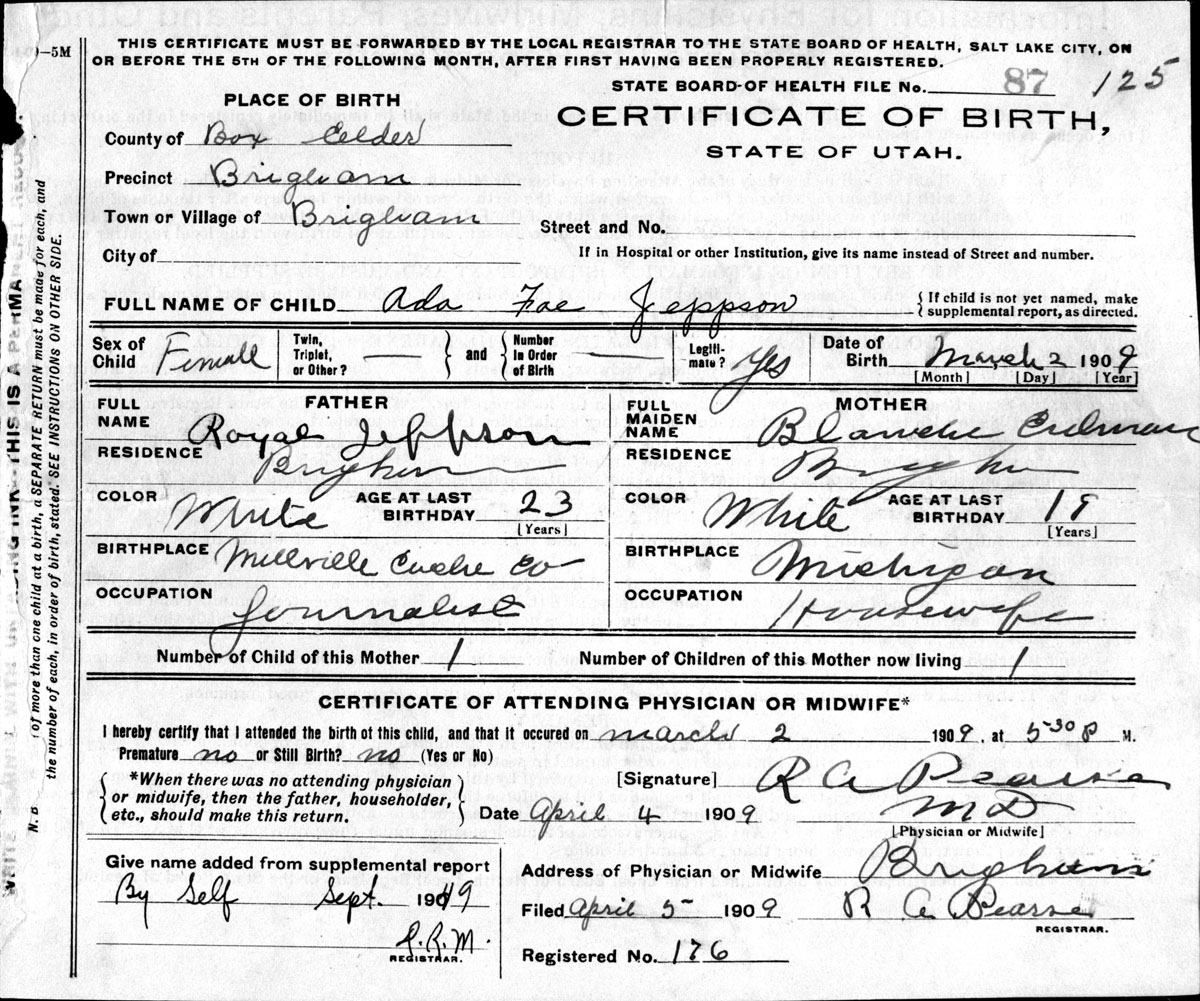 )-5M
THIS CERTIFICATE MUST BE FORWARDED BY THE LOCAL REGISTRAR TO THE STATE BOARD OF HEALTH, SALT LAKE CITY, ON
OR BEFORE THE 5TH OF THE FOLLOWING MONTH, AFTER FIRST HAVING BEEN PROPERLY REGISTERED.
STATE BOARD OF HEALTH FILE No. 87 125
PLACE OF BIRTH
CERTIFICATE OF BIRTH,
STATE OF UTAH.
County of Box Elder
Precinct Brigham
Town or Village of Brigham
Street and No.
City of
If in Hospital or other Institution, give its name instead of Street and number.
FULL NAME OF CHILD Ada Fae Jeppson
{ If child is not yet named, make
supplemental report, as directed.
Sex of Child Female
Twin, Triplet, or Other? — } and { Number in Order of Birth —
Legitimate? Yes
Date of Birth March 2 1909
[Month] [Day] [Year]
FATHER
FULL NAME Royal Jeppson
RESIDENCE Brigham
COLOR White AGE AT LAST BIRTHDAY 23
[Years]
BIRTHPLACE Millville Cache Co
OCCUPATION Journalist
MOTHER
FULL MAIDEN NAME Blanche
RESIDENCE Brigham
COLOR White AGE AT LAST BIRTHDAY 19
[Years]
BIRTHPLACE Michigan
OCCUPATION Housewife
Number of Child of this Mother 1 Number of Children of this Mother now living 1
CERTIFICATE OF ATTENDING PHYSICIAN OR MIDWIFE*
I hereby certify that I attended the birth of this child, and that it occured on March 2 1909, at 5-30 P M.
Premature no or Still Birth? no (Yes or No)
{ *When there was no attending physician
or midwife, then the father, householder,
etc., should make this return. }
[Signature] R A Pearse
M D
Date April 4 1909
[Physician or Midwife]
Give name added from supplemental report
By Self Sept. 1949
R.R.M.
REGISTRAR.
Address of Physician or Midwife Brigham
Filed April 5 1909 R A Pearse
REGISTRAR.
Registered No. 176
N. B. of more than one child at a birth, a SEPARATE RETURN must be made for each, and
the number of each, in order of birth, stated. SEE INSTRUCTIONS ON OTHER SIDE.